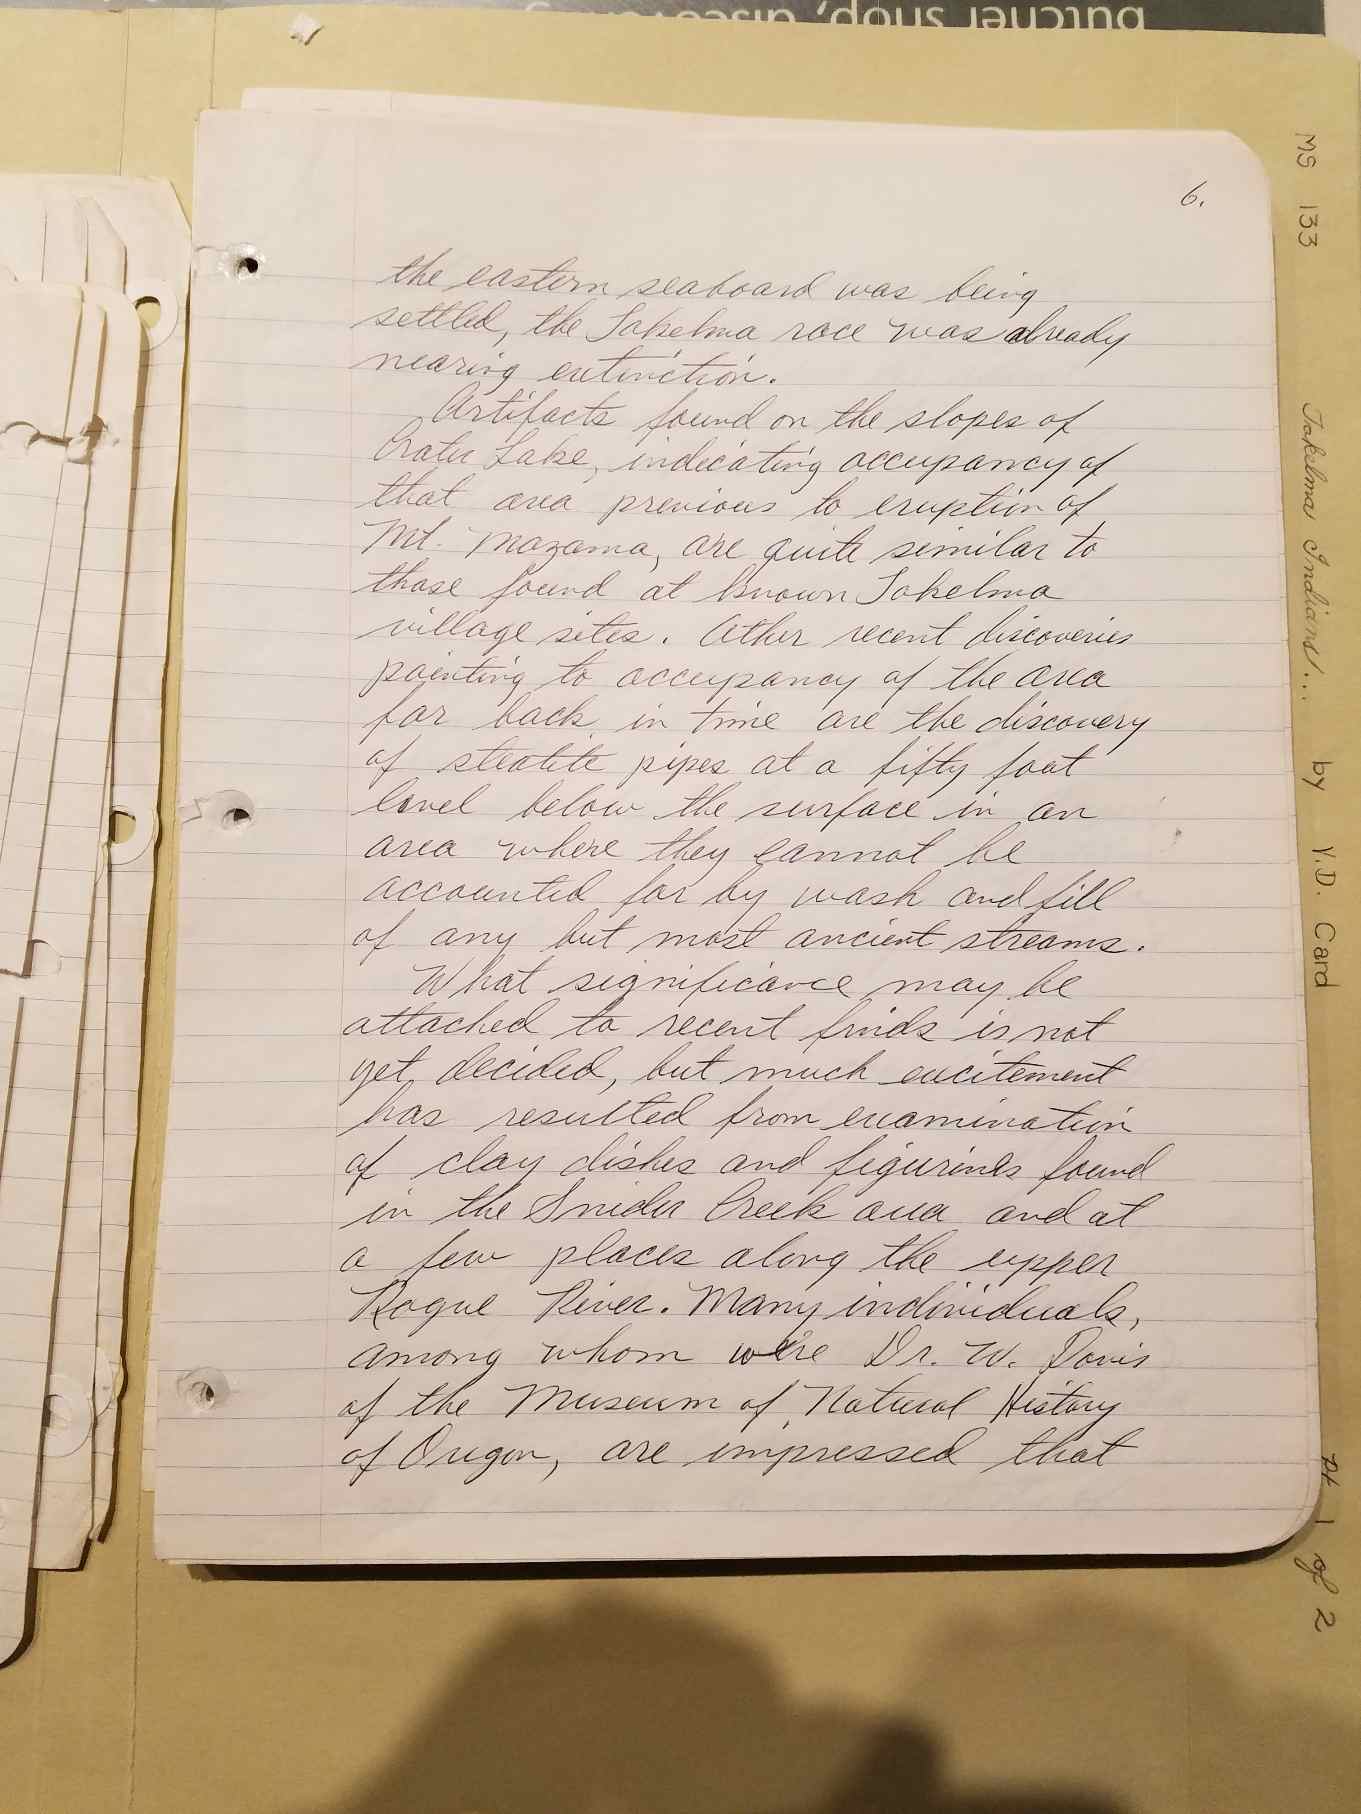 butcher shop,
6.
the eastern seaboard was being
settled, the Takelma race was already
nearing extinction.
Artifacts found on the slopes of
Crater Lake, indicating occupancy of
that area previous to eruption of
Mt. Mazama, are quite similar to
those found at known Takelma
village sites. Other recent discoveries
pointing to occupancy of the area
far back in time are the discovery
of steatite pipes at a fifty foot
level below the surface in an
area where they cannot be
accounted for by wash and fill
of any but most ancient streams.
What significance may be
attached to recent finds is not
yet decided, but much excitement
has resulted from examination
of clay dishes and figurines found
in the Snider Creek area and at
a few places along the upper
Rogue River. Many individuals,
among whom were Dr. W. Davis
of the Museum of Natural History
of Oregon, are impressed that
MS 133 Takelma Indians!... by V.D. Card pt 1 of 2